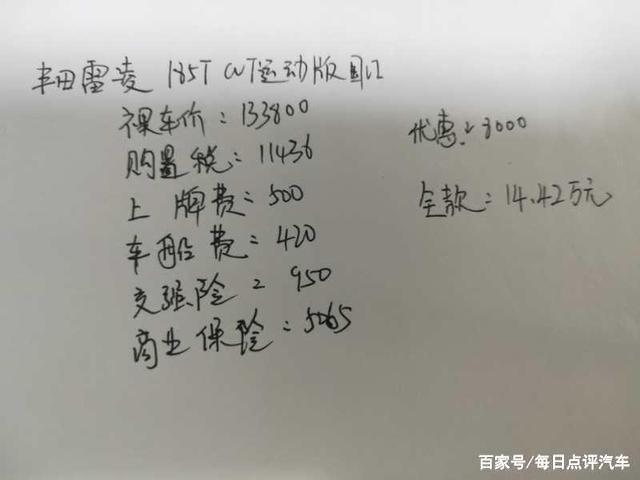 丰田雷凌 185T CVT运动版国VI
裸车价：133800
购置税：11436
上牌费：500
车船费：420
交强险：950
商业保险：5065
优惠：8000
全款：14.42万元
百家号/每日点评汽车